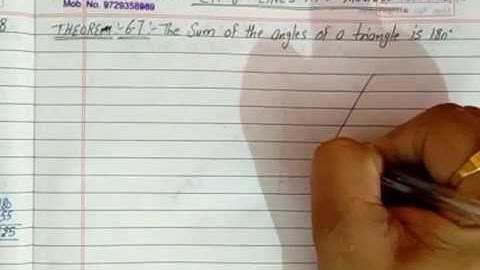 Mob No. 9729358989
8
THEOREM :- 6.7 :- The Sum of the angles of a triangle is 180°
55